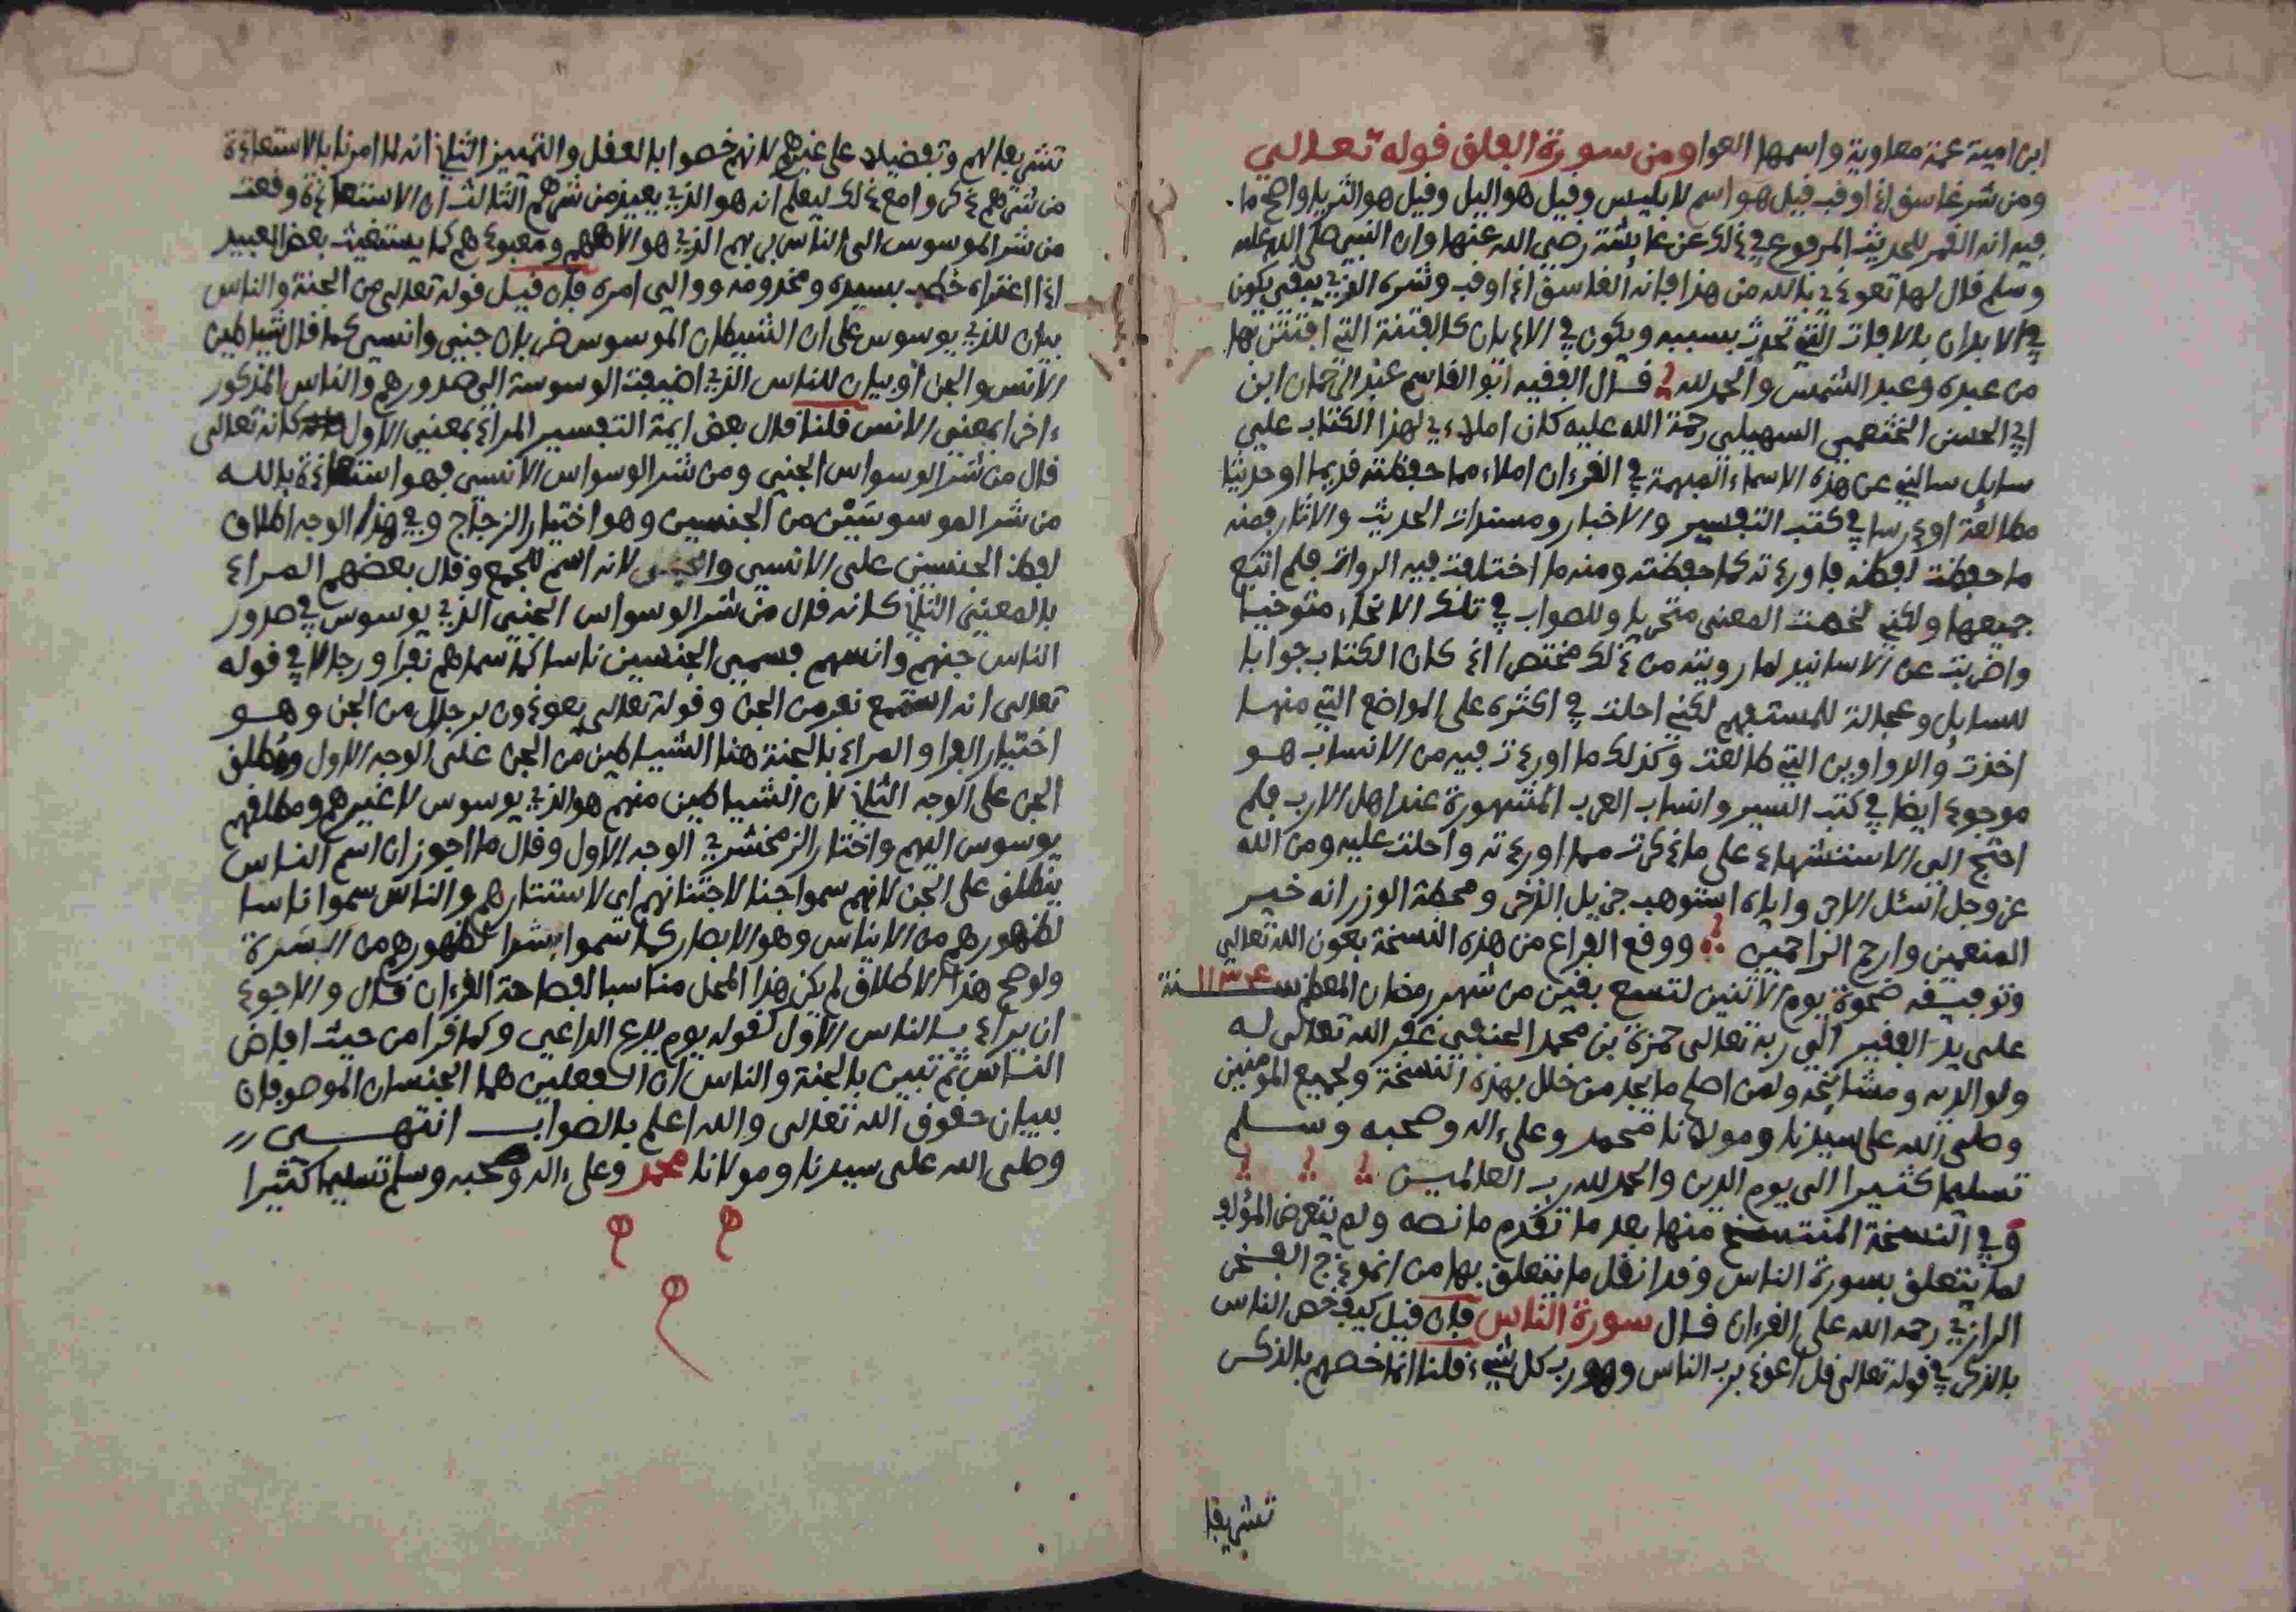 ابن امية عمة معاوية واسمها العوا ومن سورة الفلق قوله تعالى
ومن شر غاسق اذا وقب قيل هو اسم لابليس وقيل هو اليل وقيل هو الثريا واصح ما
فيه انه القمر للحديث المرفوع في ذلك عن عائشة رضى الله عنها وان النبي صلى الله عليه
وسلم قال لها تعوذي بالله من هذا فانه الغاسق اذا وقب وشره الذي يبقى يكون
في الابدان بالافات التي تحدث بسببه ويكون في الاديان كالفتنة التي افتتن بها
من عبده وعبد الشمس والحمد لله قال الفقيه ابو القاسم عبد الرحمان ابن
ابي الحسن الخثعمي السهيلي رحمة الله عليه كان املاءي لهذا الكتاب على
سايل سالني عن هذه الاسماء المبهمة في القرءان املاء مما حفظته قديما او حديثا
مطالعة او درسا في كتب التفسير والاخبار ومسندات الحديث والاثار فمنه
ما حفظت لفظه فاوردته كما حفظته ومنه ما اختلفت فيه الرواة فلم اتتبع
جميعها ولكني لخصت المعنى متحريا وللصواب في تلك الانحاء متوخيا
واضربت عن الاسانيد لما رويته من ذلك مختصرا اذ كان الكتاب جوابا
للسايل وعجالة للمستفهم لكني احلت في اكثره على المواضع التي منها
اخذت والدواوين التي طالعت وكذلك ما اوردت فيه من الانساب هو
موجود ايضا في كتب السير وانساب العرب المشهورة عند اهل الادب فلم
احتج الى الاستشهاد على ما ذكرت مما اوردته واحلت عليه ومن الله
عز وجل أسئل الاجر واياه استوهب جزيل الذخر ومحطة الوزر انه خير
المنعمين وارحم الراحمين ووقع الفراغ من هذه النسخة بعون الله تعالى
وتوفيقه ضحوة يوم الاثنين لتسع بقين من شهر رمضان المعظم سنة
على يد الفقير الى ربه تعالى حمزة بن محمد الحنفي غفر الله تعالى له
ولوالديه ومشائخه ولمن اصلح ما يجد من خلل بهذه النسخة ولجميع المؤمنين
وصلى الله على سيدنا ومولانا محمد وعلى ءاله وصحبه وسلم
تسليما كثيرا الى يوم الدين والحمد لله رب العالمين
وفي النسخة المنتسخ منها بعد ما تقدم ما نصه ولم يتعرض المؤلف
لما يتعلق بسورة الناس وقد انقل ما يتعلق بها من انموذج الفخر
الرازي رحمه الله على القرءان قال سورة الناس فان قيل كيف خص الناس
بالذكر في قوله تعالى قل اعوذ برب الناس وهو رب كل شيء قلنا انما خصهم بالذكر
تشريفا
تشريفا لهم وتفضيلا على غيرهم لانهم خصوا بالعقل والتمييز الثاني انه لما امرنا بالاستعاذة
من شرهم ذكروا مع ذلك ليعلم انه هو الذي يعيذ من شرهم الثالث ان الاستعاذة وقعت
من شر الموسوس الى الناس بربهم الذي هو الاههم ومعبودهم كما يستغيث بعض العبيد
اذا اعتراه خطب بسيده ومخدومه ووالي امره فان قيل قوله تعالى من الجنة والناس
بيان للذي يوسوس على ان الشيطان الموسوس ضربان جني وانسي كما قال شياطين
الانس والجن او بيان للناس الذي اضيفت الوسوسة الى صدورهم والناس المذكور
ءاخرا بمعنى الانس قلنا قال بعض ايمة التفسير المراد بمعنى الاول كانه تعالى
قال من شر الوسواس الجني ومن شر الوسواس الانسي فهو استعاذة بالله
من شر الموسوسين من الجنسين وهو اختيار الزجاج وفي هذا الوجه اطلاق
لفظ الجنسين على الانسي والجني لانه اسم للجمع وقال بعضهم المراد
بالمعنى الثاني كانه قال من شر الوسواس الجني الذي يوسوس في صدور
الناس جنهم وانسهم فسمى الجنسين ناسا كما سماهم نفرا ورجالا في قوله
تعالى انه استمع نفر من الجن وقوله تعالى يعوذون برجال من الجن وهو
اختيار الفرا والمراد بالجنة هنا الشياطين من الجن على الوجه الاول ومطلق
الجن على الوجه الثاني لان الشياطين منهم هو الذي يوسوس لا غيرهم ومطلقهم
يوسوس اليهم واختار الزمخشري الوجه الاول وقال ما اجوز ان اسم الناس
ينطلق على الجن لانهم سموا جنا لاجتنانهم اى لاستتارهم والناس سموا ناسا
لظهورهم من الايناس وهو الابصار كما سموا بشرا لظهورهم من البشرة
ولو صح هذا الاطلاق لم يكن هذا المحل مناسبا لفصاحة القرءان قال والاجود
ان يراد بالناس الاول كقوله يوم يدع الداعي وكما قرا من حيث افاض
الناس ثم تبين بالجنة والناس ان الثقلين هما الجنسان الموصوفان
ببيان حقوق الله تعالى والله اعلم بالصواب انتهى
وصلى الله على سيدنا ومولانا محمد وعلى ءاله وصحبه وسلم تسليما كثيرا